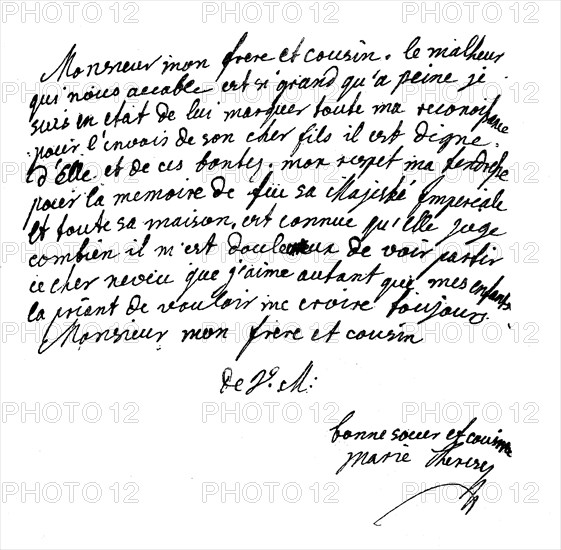 Monsieur mon frere et cousin. le malheur
qui nous accable est si grand qu'a peine je
suis en etat de lui marquer toute ma reconoissence
pour l'envois de son cher fils il est digne
d'Elle et de ces bontes. mon respet ma tendresse
pour la memoire de feu sa Majesté Impereale
et toute sa maison, est connue qu'elle juge
combien il m'est douleureux de voir partir
ce cher neveu que j'aime autant que mes enfants
la priant de vouloir me croire toujours.
Monsieur mon frere et cousin
de V. M:
bonne soeur et cousine
marie Therese
PHOTO 12